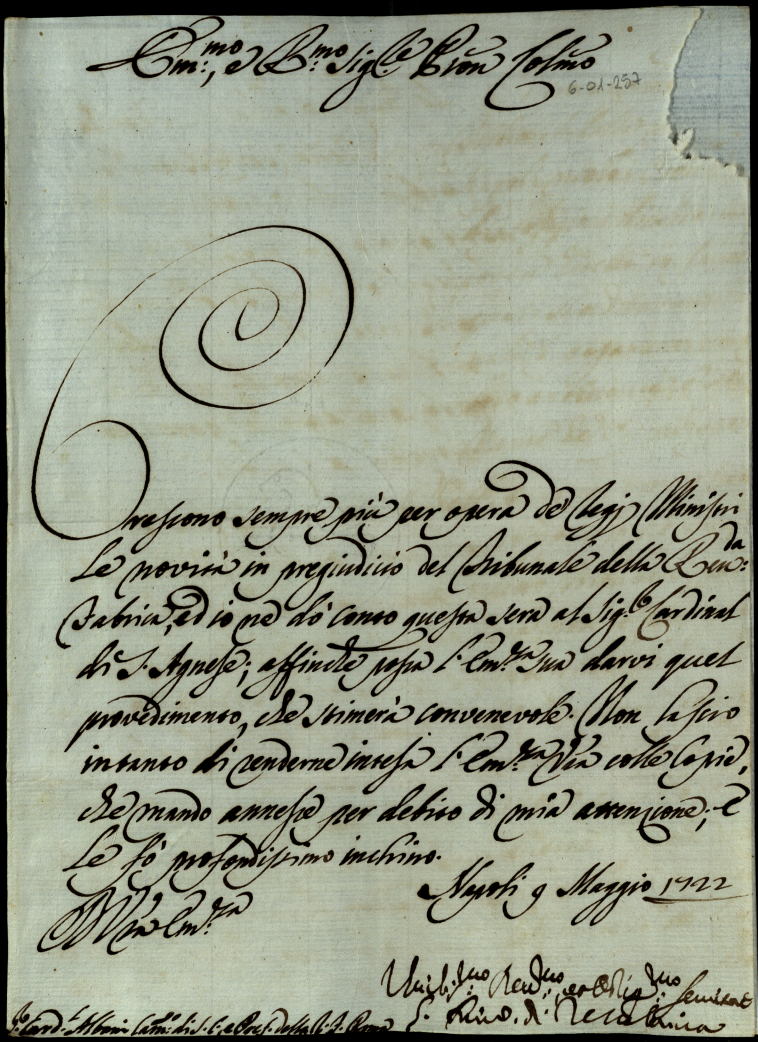 Em.mo, e R.mo Sig.re Pron Colmo
6-01-257
Crescono sempre più per opera de' Regj Ministri
le novità in pregiudicio del Tribunale della Reu.da
Fabrica, ed io ne dò conto questa sera al Sig.r Cardinal
di S. Agnese; affinche possa l'Em.za Sua darvi quel
provedimento, che stimerà convenevole. Non lascio
intanto di renderne intesa l'Em.za Vra colle Copie,
che mando annesse per debito di mia attenzione; e
le fò profondissimo inchino.
Napoli 9 Maggio 1722
Di Vra Em.za
Umiliss.mo Deu.mo, et Oblig.mo Seruitore
S.r Card.l Albani Cam.o di S. C. e Pref. della Roma